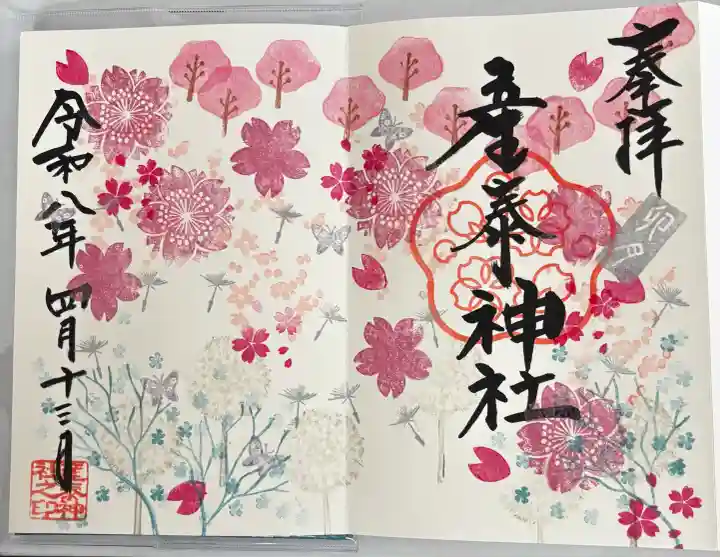 奉拝
卯月
産泰神社
令和八年 四月十三日
産泰神社之印